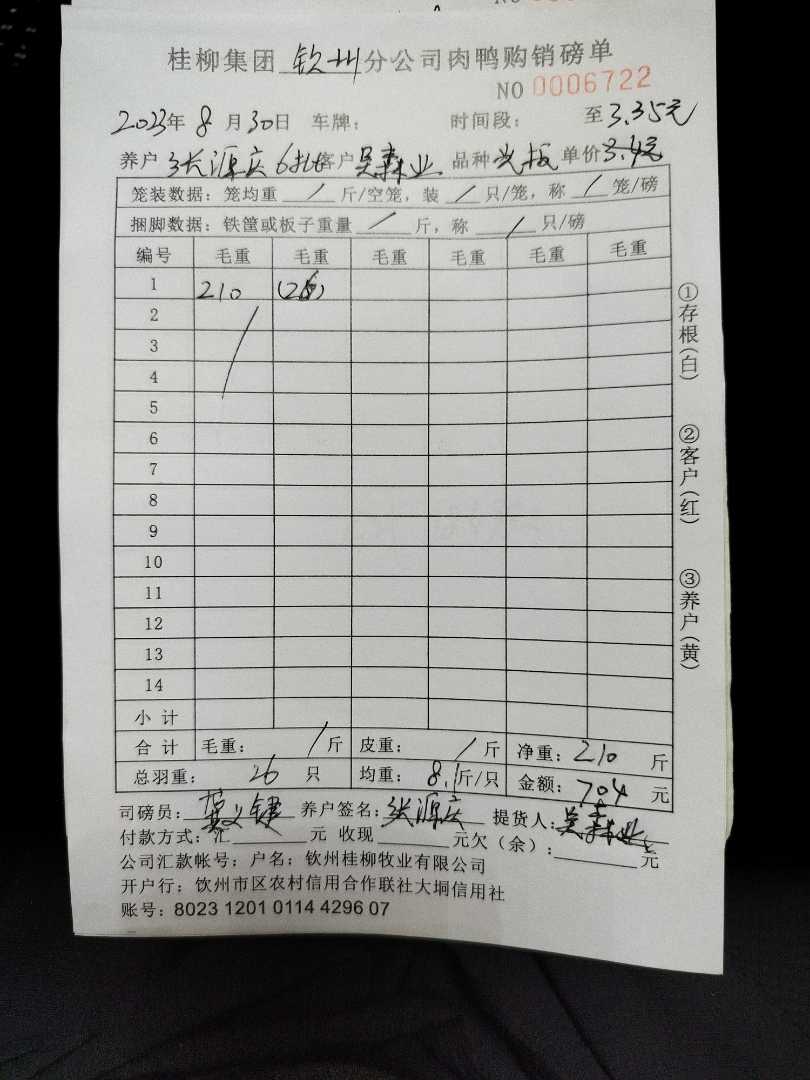 桂柳集团 钦州 分公司肉鸭购销磅单
NO 0006722
2023年 8 月 30日 车牌： 时间段： 至 3.35元
养户 张源庆 6批 客户 吴森业 品种 光板 单价 3.4元
笼装数据：笼均重 / 斤/空笼，装 / 只/笼，称 / 笼/磅
捆脚数据：铁筐或板子重量 / 斤，称 / 只/磅
编号 毛重 毛重 毛重 毛重 毛重 毛重
1 210 (26)
2
3
4
5
6
7
8
9
10
11
12
13
14
小 计
合 计 毛重： / 斤 皮重： / 斤 净重：210 斤
总羽重： 26 只 均重： 8.1 斤/只 金额：704 元
司磅员： 养户签名：张源庆 提货人：吴森业
付款方式：汇 元 收现 元欠（余）： 元
公司汇款帐号；户名；钦州桂柳牧业有限公司
开户行；饮州市区农村信用合作联社大垌信用社
账号：8023 1201 0114 4296 07
①存根(白)
②客户(红)
③养户(黄)